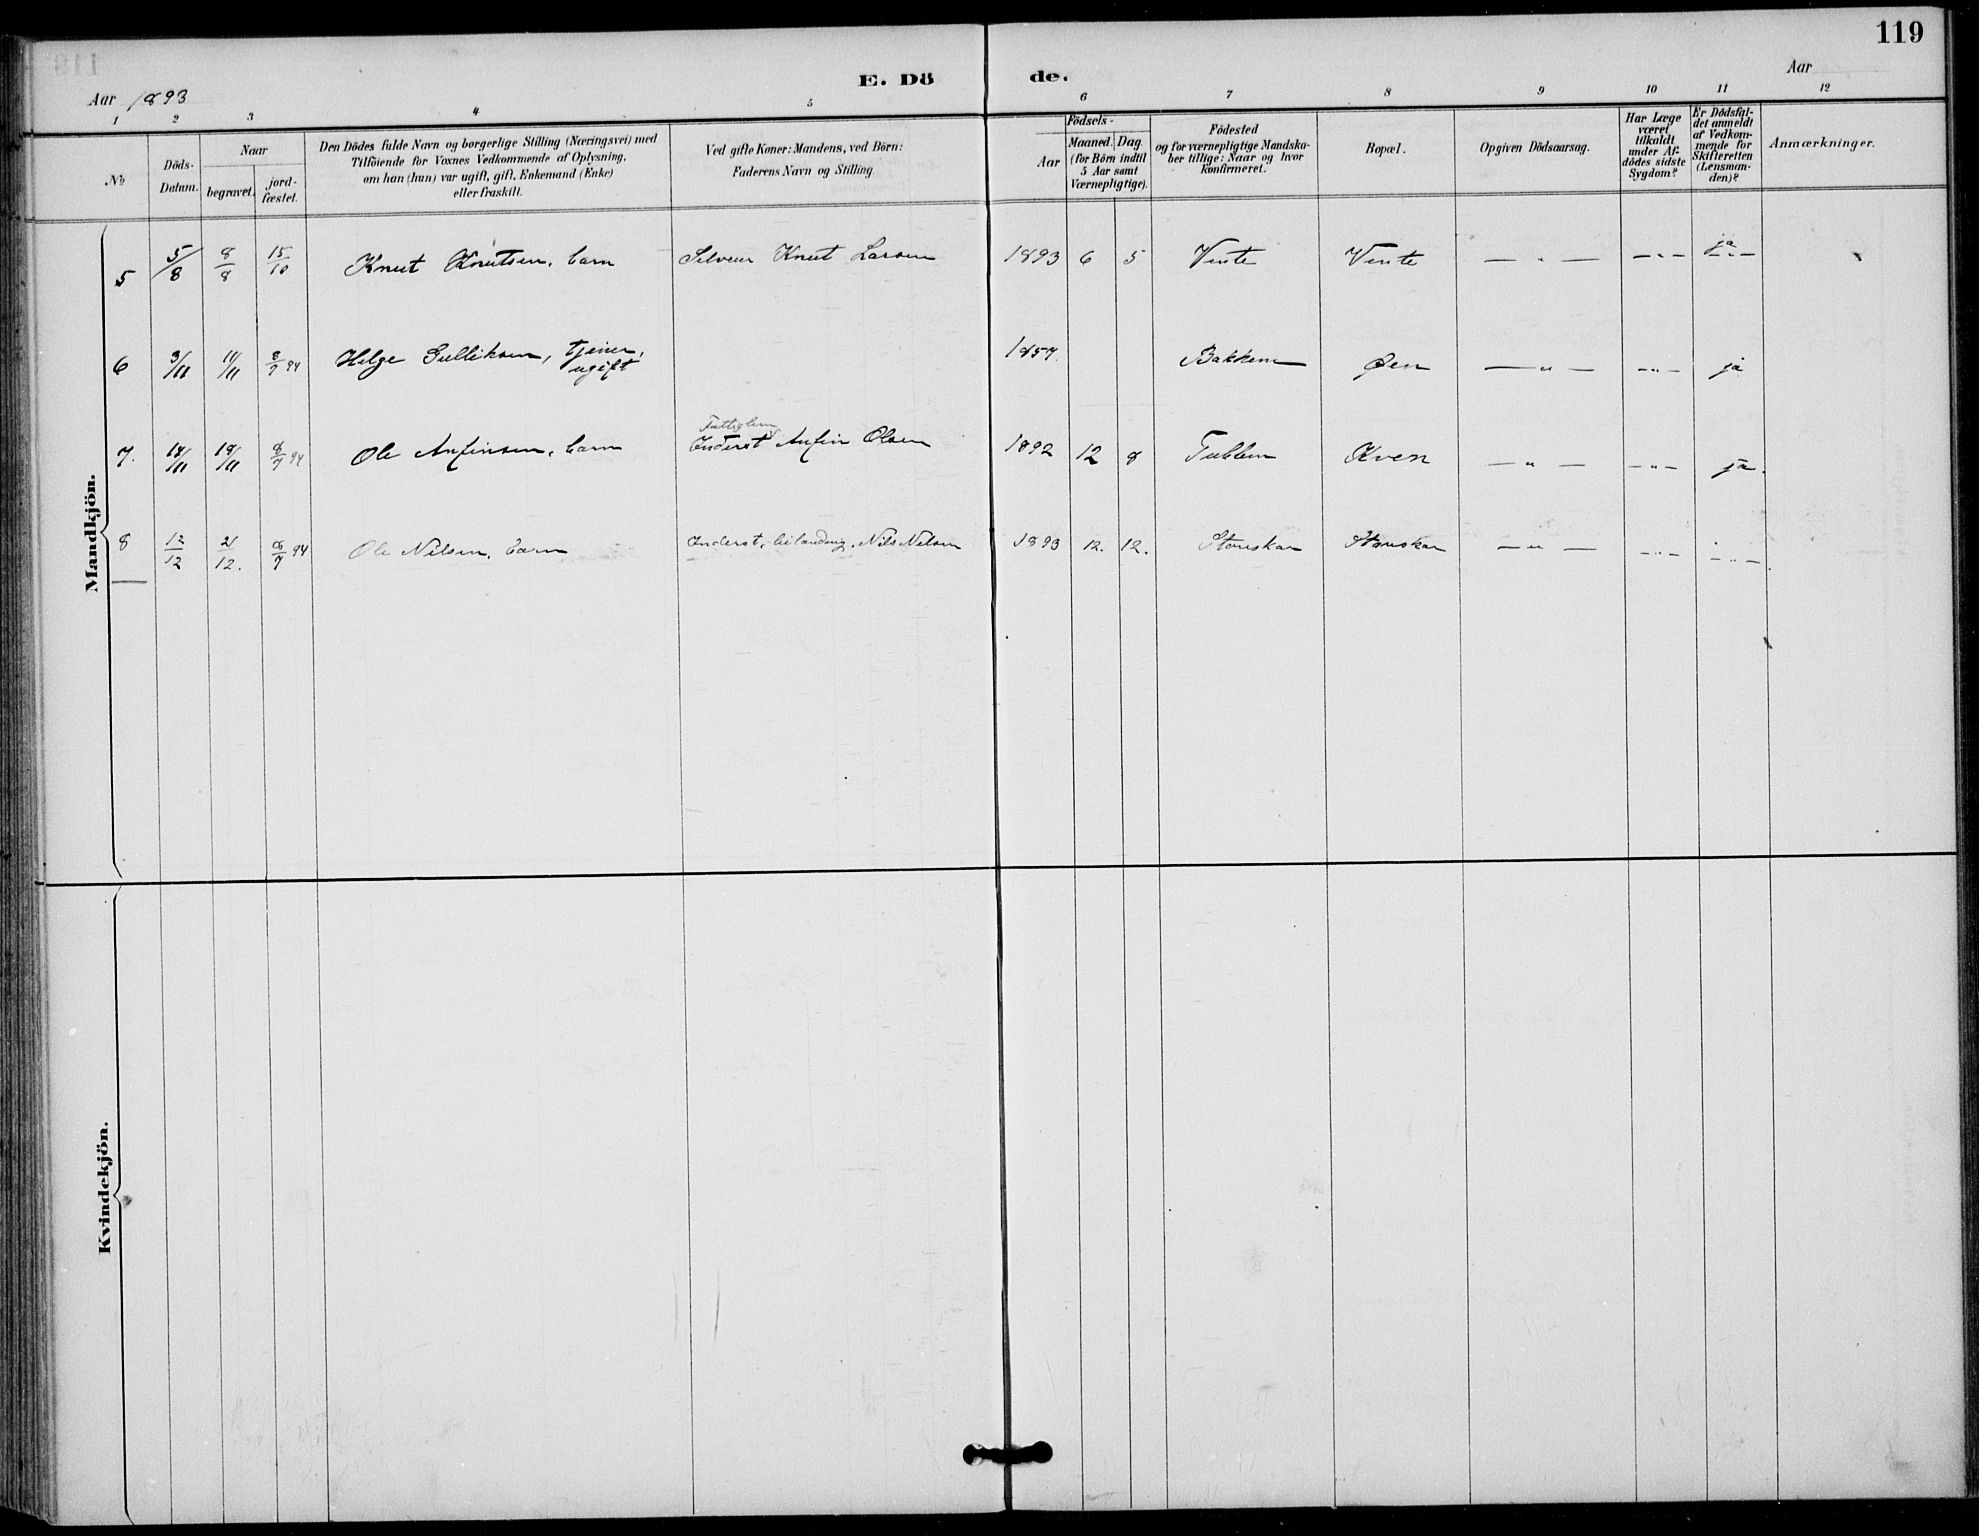 119
E. Dö de.
Aar 1893
Aar
1 2 3 4 5 6 7 8 9 10 11 12
No
Döds-Datum.
Naar
begravet.
jord-fæstet.
Den Dödes fulde Navn og borgerlige Stilling (Næringsvei) med
Tilföiende for Voxnes Vedkommende af Oplysning,
om han (hun) var ugift, gift, Enkemand (Enke)
eller fraskilt.
Ved gifte Koner: Mandens, ved Börn:
Faderens Navn og Stilling.
Födsels-
Aar
Maaned. Dag.
(for Börn indtil
5 Aar samt
Værnepligtige).
Födested
og for værnepligtige Mandska-
ber tillige: Naar og hvor
konfirmeret.
Bopæl.
Opgiven Dödsaarsag.
Har Læge
været
tilkaldt
under Af-
dödes sidste
Sygdom?
Er Dödsfal-
det anmeldt
af Vedkom-
mende for
Skifteretten
(Lensman-
den)?
Anmærkninger.
Mandkjön.
5 5/8 8/8 15/10 Knut Knutsen, barn Selveier Knut Larsen 1893 6 5 Vente Vente — " — — " — ja — " —
6 3/11 11/11 8/7 94 Helge Gulliksen, tjener, ugift 1857. Bakken Øen — " — — " — ja
Fattiglem
7. 14/11 18/11 8/7 94 Ole Anfinsen, barn Inderst Anfin Olsen 1892 12 8 Kven — " — — " — ja.
8 12/12 21/12. 8/7 94 Ole Nilsen, barn Inderst, Nils Nilsen 1893 12. 12. — " — — " — — " —
Kvindekjön.